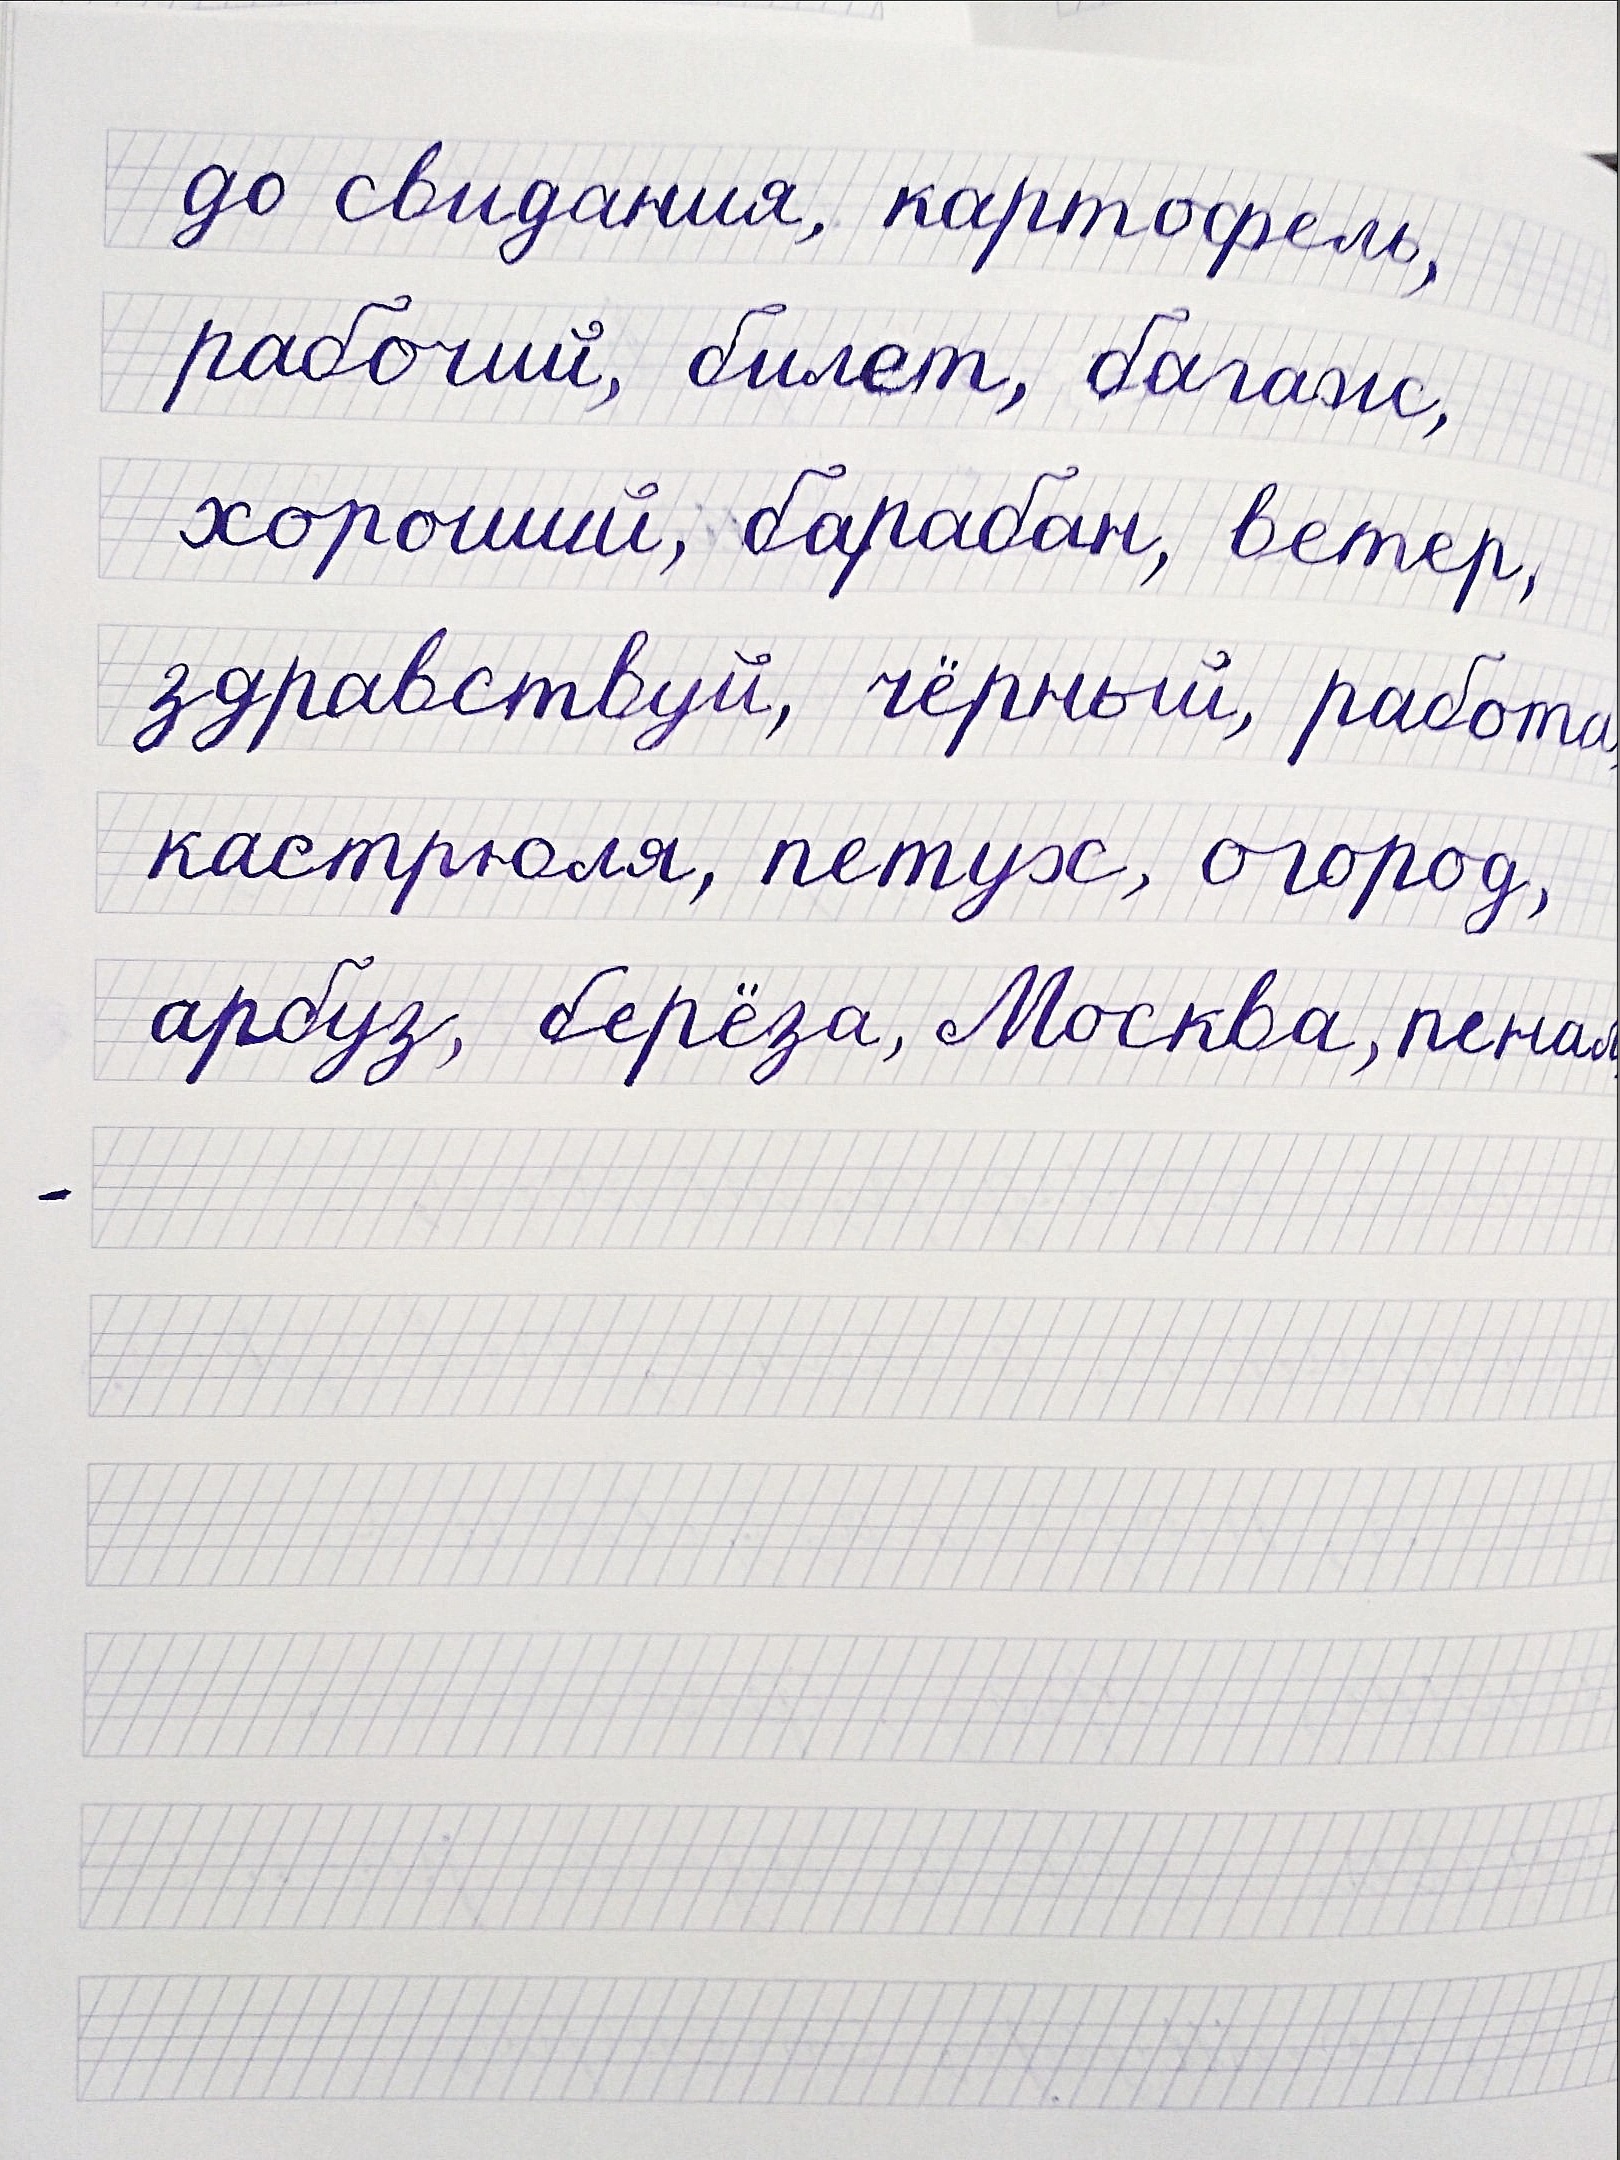 до свидания, картофель,
рабочий, билет, багаж,
хороший, барабан, ветер,
здравствуй, чёрный, работа,
кастрюля, петух, огород,
арбуз, берёза, Москва, пенал,